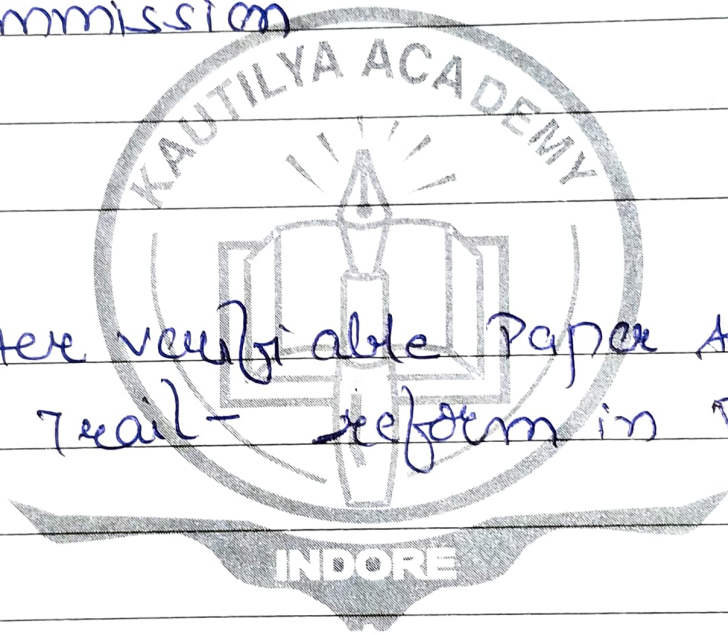 mmission
KAUTILYA ACADEMY
ter verifiable Paper A
Trail- reform in
INDORE